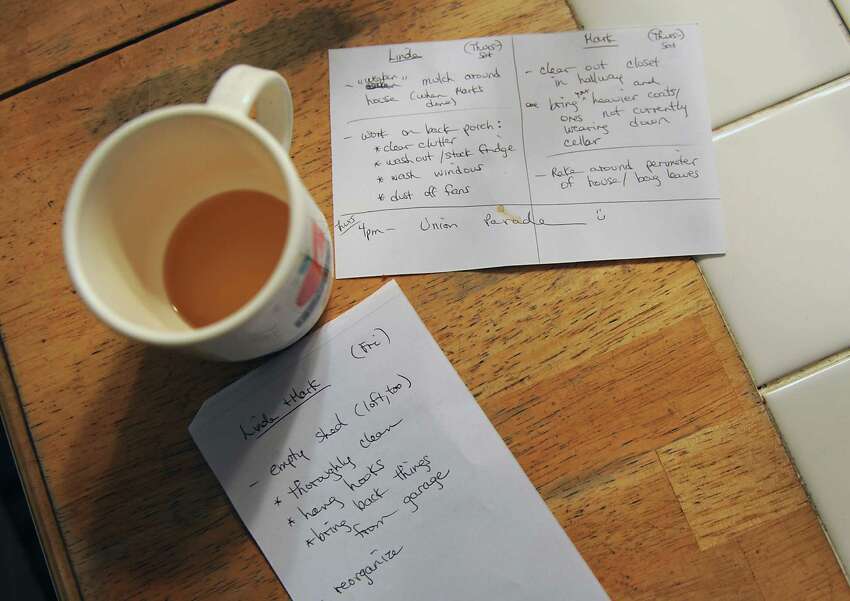 Linda (Thurs)
Sat
- "weather" mulch around
house (when Mark's
done)
- work on back porch:
* clear clutter
* wash out/stock fridge
* wash windows
* dust off fans
Mark (Thurs)
Sat
- clear out closet
in hallway and
bring heavier coats/
ones not currently
wearing down
cellar
- Rake around perimeter
of house/bag leaves
Thurs 4pm - Union Parade
Linda + Mark (Fri)
- empty shed (loft, too)
* thoroughly clean
* hang hooks
* bring back things
from garage
reorganize